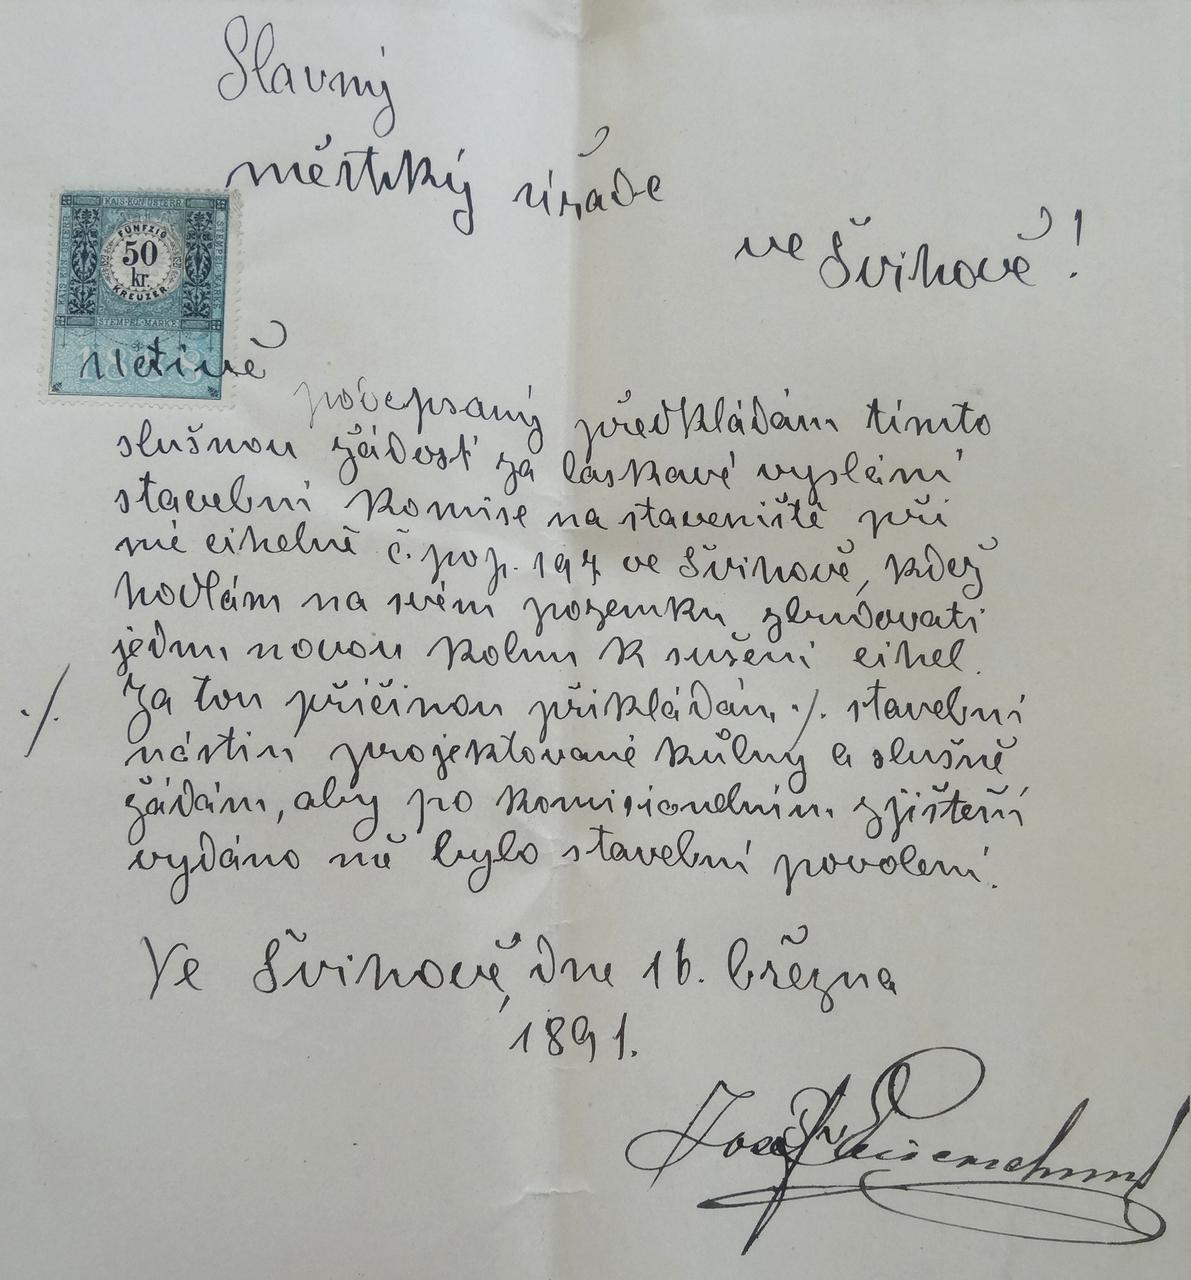 Slavný
městský úřade
ve Švihově!
KAIS. KÖN. ÖSTERR.
FÜNFZIG
50
kr.
KREUZER
STEMPEL-MARKE
1888
Uctivě
podepsaný předkládám tímto
slušnou žádost za laskavé vyslání
stavební komise na staveniště při
mé cihelně č. pop. 197 ve Švihově, kdež
hodlám na svém pozemku zbudovati
jednu novou kolnu k sušení cihel.
Za tou příčinou přikládám ./. stavební
./.
nástin projektované kůlny a slušně
žádám, aby po komisionelním zjištění
vydáno mě bylo stavební povolení.
Ve Švihově, dne 16. března
1891.
Josef